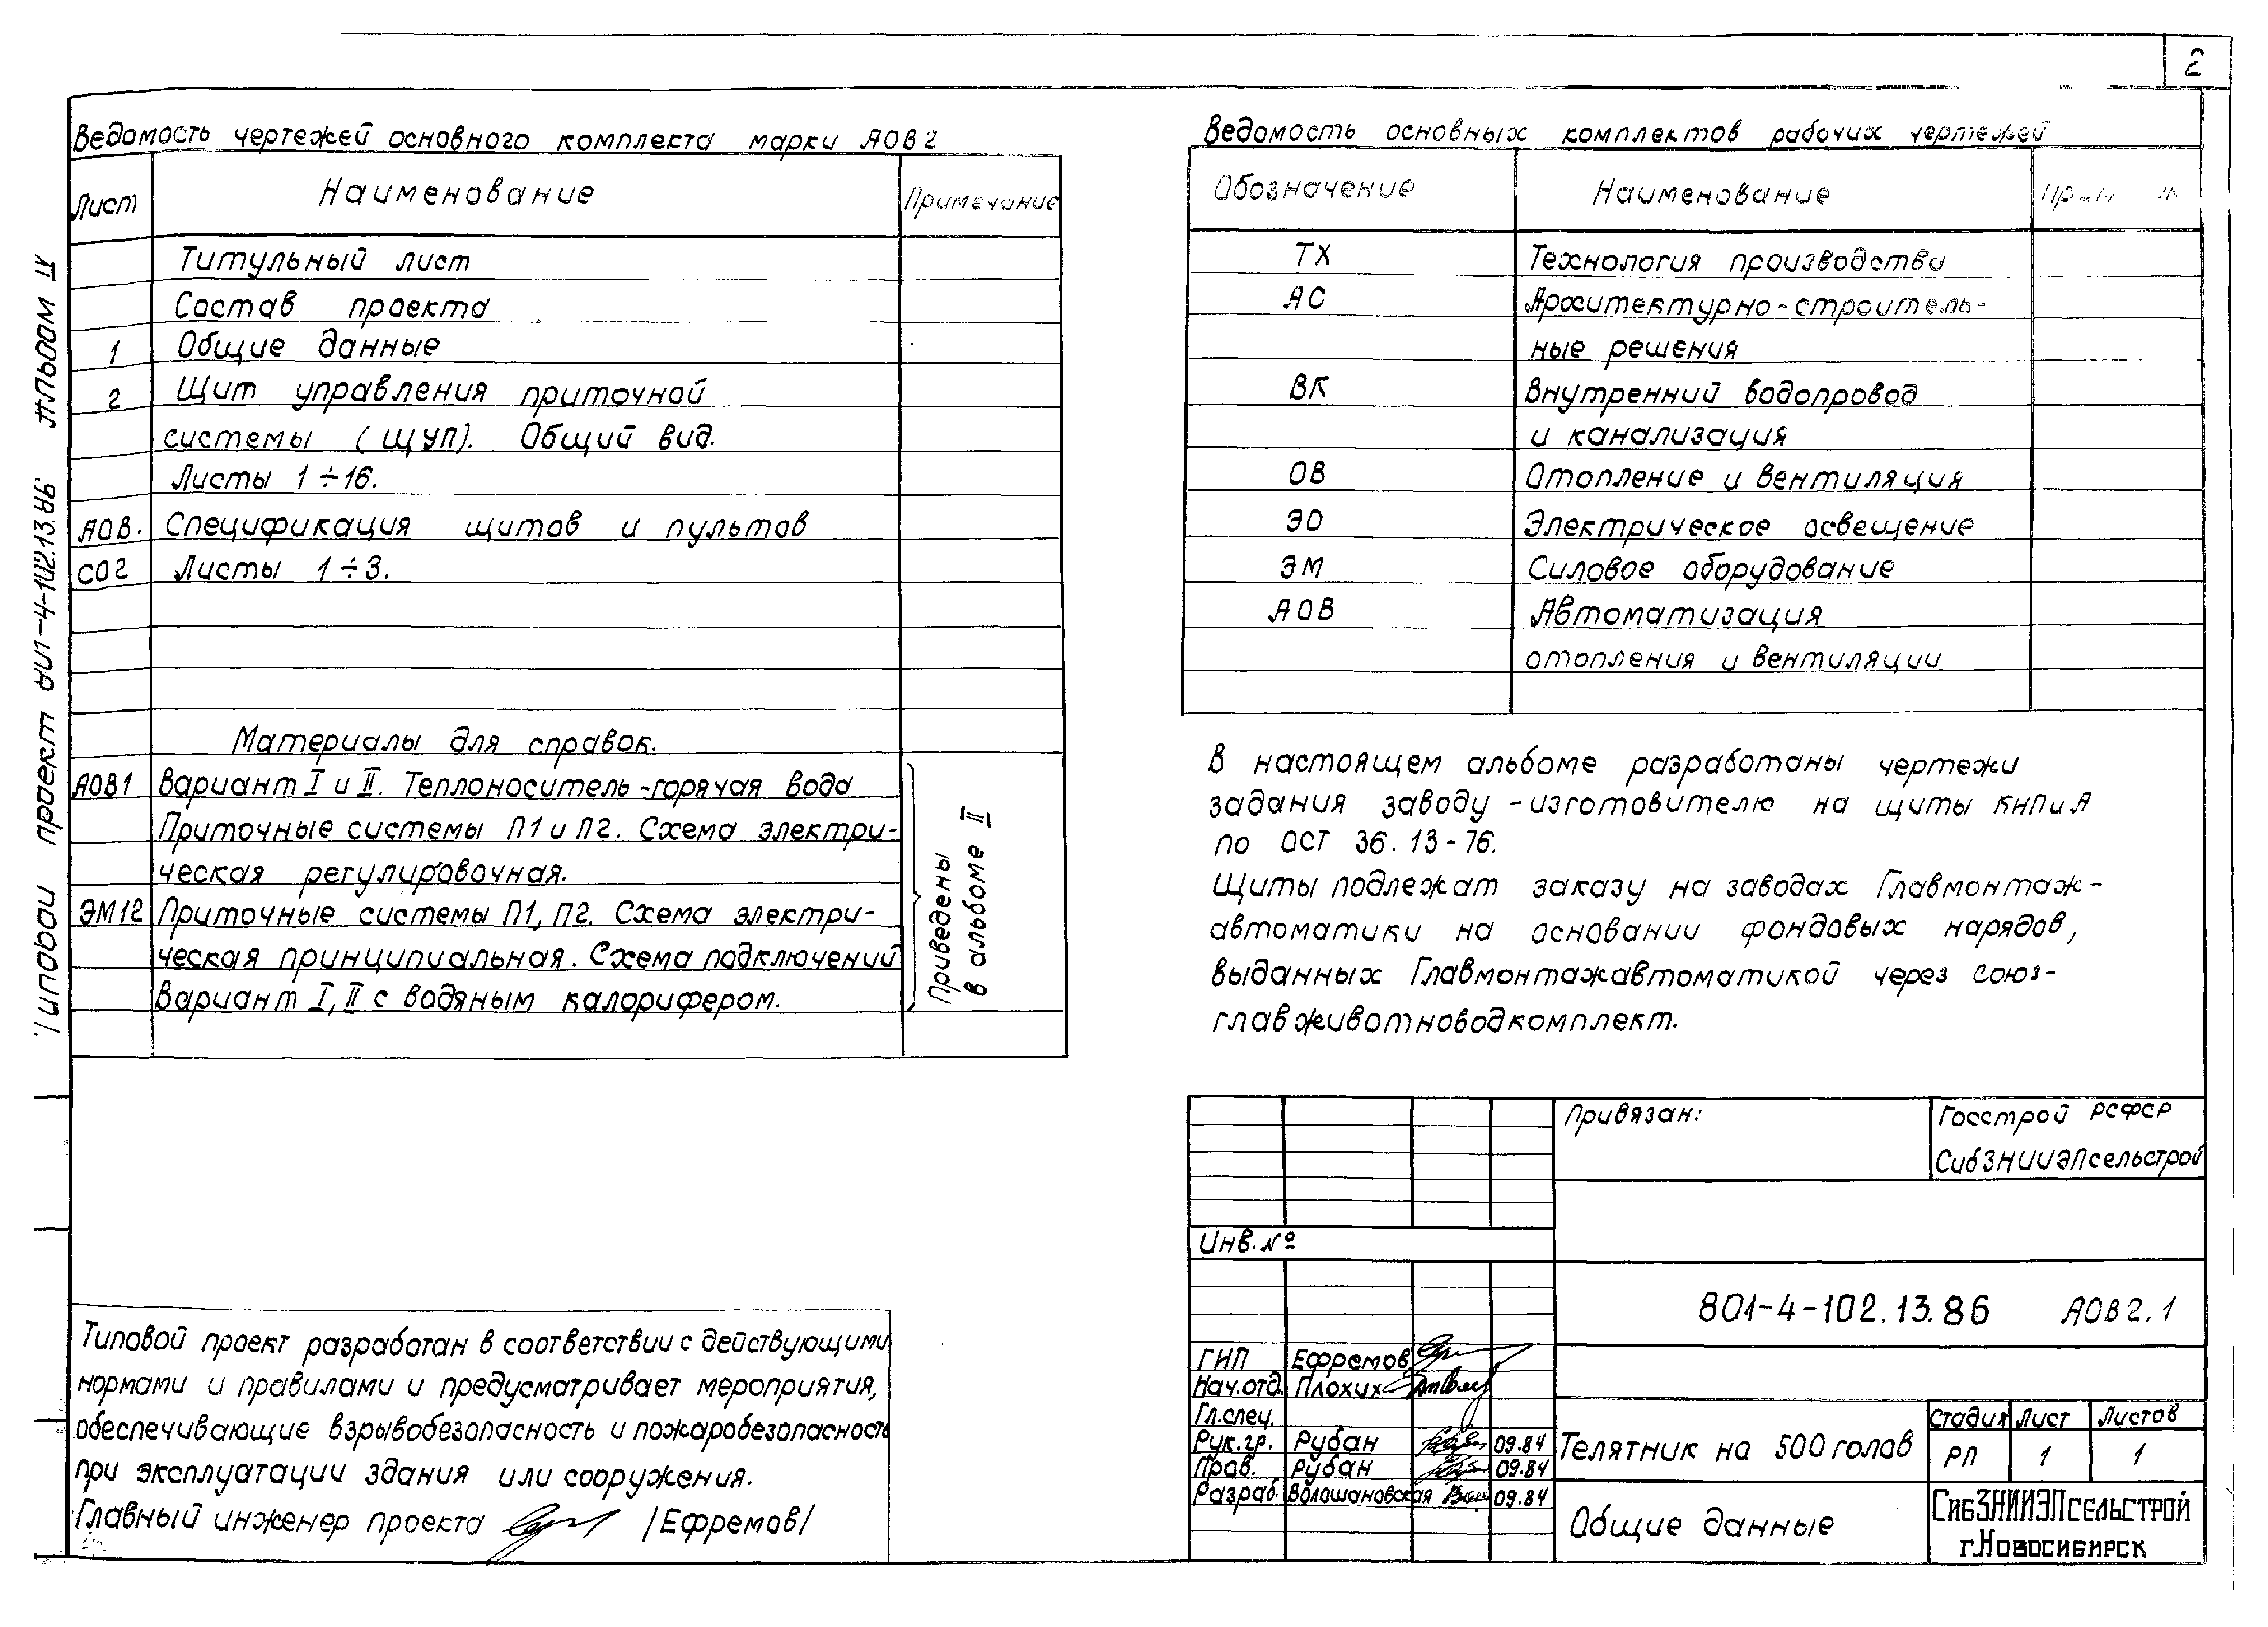 2
Типовой проект 801-4-102.13.86. Альбом IV
Ведомость чертежей основного комплекта марки АОВ2
Лист Наименование Примечание
Титульный лист
Состав проекта
1 Общие данные
2 Щит управления приточной
системы (ЩУП). Общий вид.
Листы 1÷16.
АОВ. Спецификация щитов и пультов
СО2 Листы 1÷3.
Материалы для справок.
АОВ1 Вариант I и II. Теплоноситель-горячая вода
Приточные системы П1 и П2. Схема электри-
ческая регулировочная.
ЭМ12 Приточные системы П1, П2. Схема электри-
ческая принципиальная. Схема подключений
Вариант I, II с водяным калорифером.
Приведены
в альбоме II
Типовой проект разработан в соответствии с действующими
нормами и правилами и предусматривает мероприятия,
обеспечивающие взрывобезопасность и пожаробезопасность
при эксплуатации здания или сооружения.
Главный инженер проекта /Ефремов/
Ведомость основных комплектов рабочих чертежей
Обозначение Наименование
ТХ Технология производства
АС Архитектурно-строитель-
ные решения
ВК Внутренний водопровод
и канализация
ОВ Отопление и вентиляция
ЭО Электрическое освещение
ЭМ Силовое оборудование
АОВ Автоматизация
отопления и вентиляции
В настоящем альбоме разработаны чертежи
задания заводу-изготовителю на щиты КИПиА
по ОСТ 36.13-76.
Щиты подлежат заказу на заводах Главмонтаж-
автоматики на основании фондовых нарядов,
выданных Главмонтажавтоматикой через Союз-
главживотноводкомплект.
Привязан:
Госстрой РСФСР
СибЗНИИЭПсельстрой
Инв.№
801-4-102.13.86 АОВ2.1
ГИП Ефремов
Нач.отд. Плохих
Гл.спец.
Рук.гр. Рубан 09.84
Пров. Рубан 09.84
Разраб. Волошановская 09.84
Телятник на 500 голов
Стадия Лист Листов
РП 1 1
Общие данные
СибЗНИИЭПсельстрой
г.Новосибирск